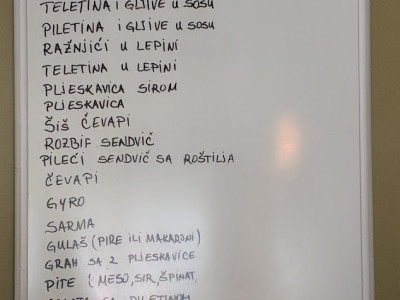 TELETINA I GLJIVE U SOSU
PILETINA I GLJIVE U SOSU
RAŽNJIĆI U LEPINI
TELETINA U LEPINI
PLJESKAVICA SIROM
PLJESKAVICA
ŠIŠ ĆEVAPI
ROZBIF SENDVIČ
PILEĆI SENDVIČ SA ROŠTILJA
ĆEVAPI
GYRO
SARMA
GULAŠ (PIRE ILI MAKARONI)
GRAH SA 2 PLJESKAVICE
PITE (MESO, SIR, ŠPINAT,
SA PILETINOM